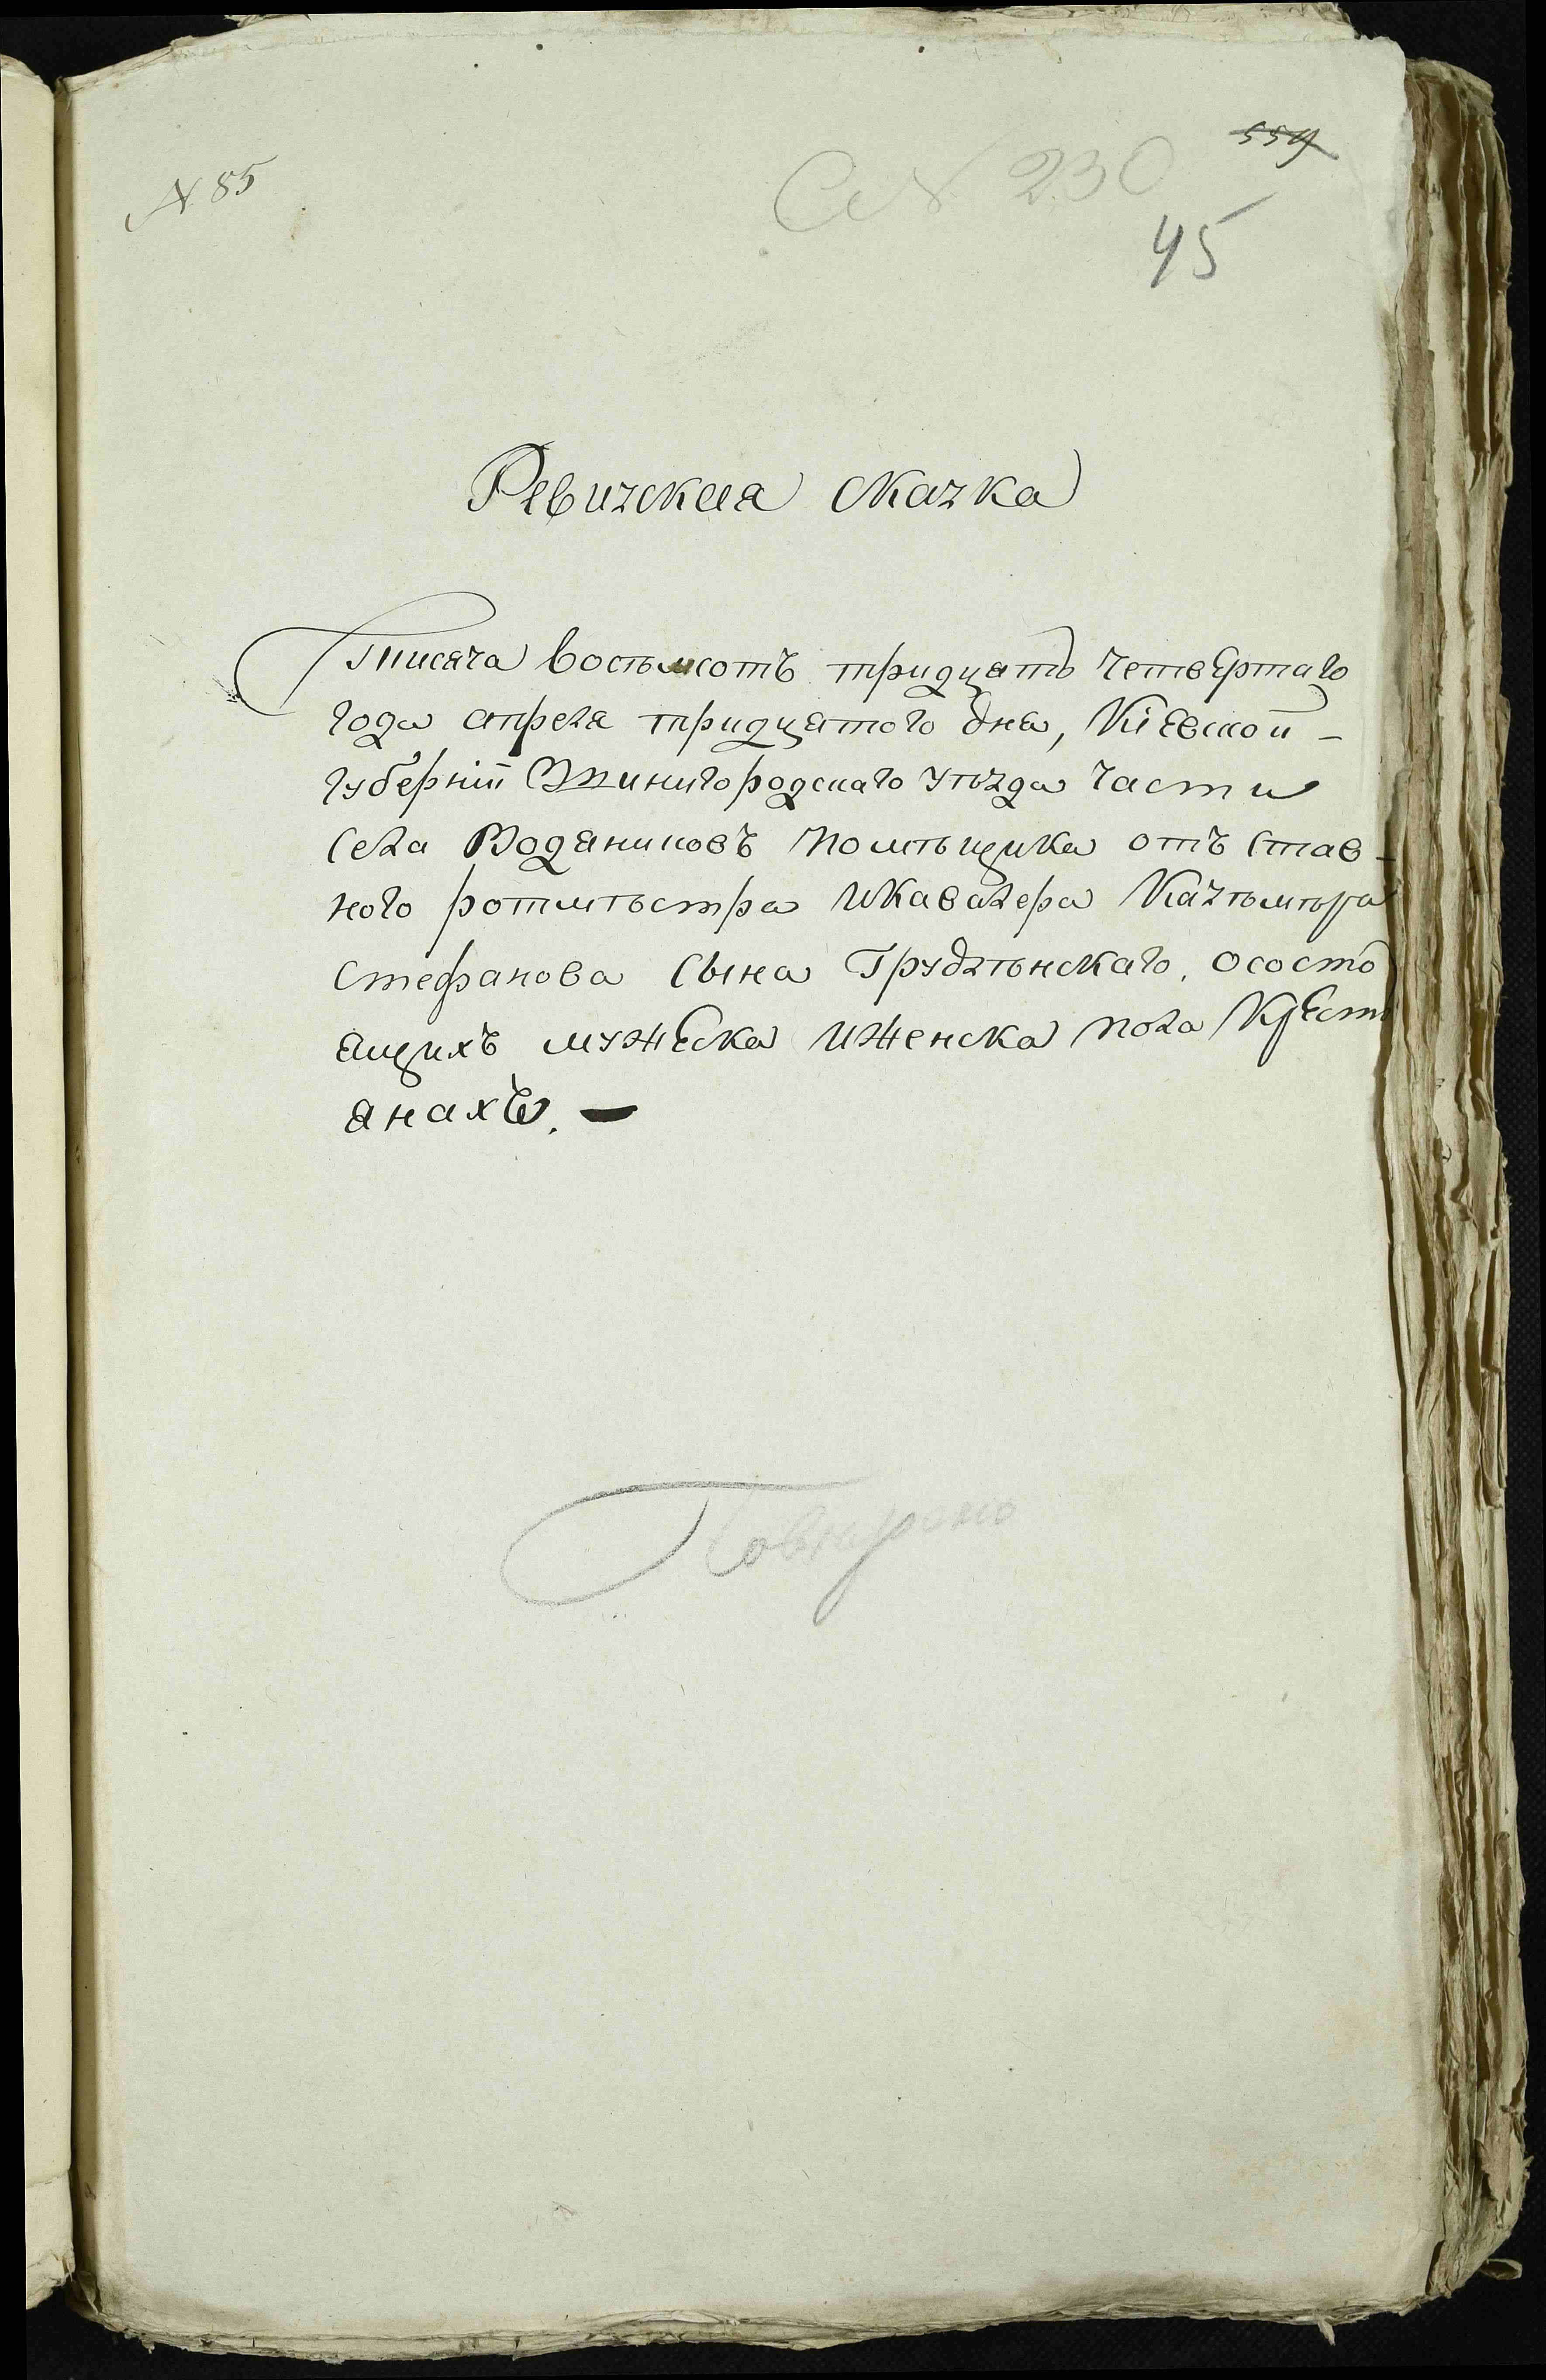 № 85
№ 230
559
45
Ревизская сказка
Тисяча восьмсотъ тридцать четвертаго
года апреля тридцятого дня, Кіевской -
губерніи Звинигородскаго уѣзда части
села Водяниковъ помѣщика отъ став-
ного ротмѣстра икавалера Казѣмѣра
Стефанова сына Грудзѣнскаго, ососто
ящихъ мужеска иженска пола крестѣ
янахъ. —
Повѣрено